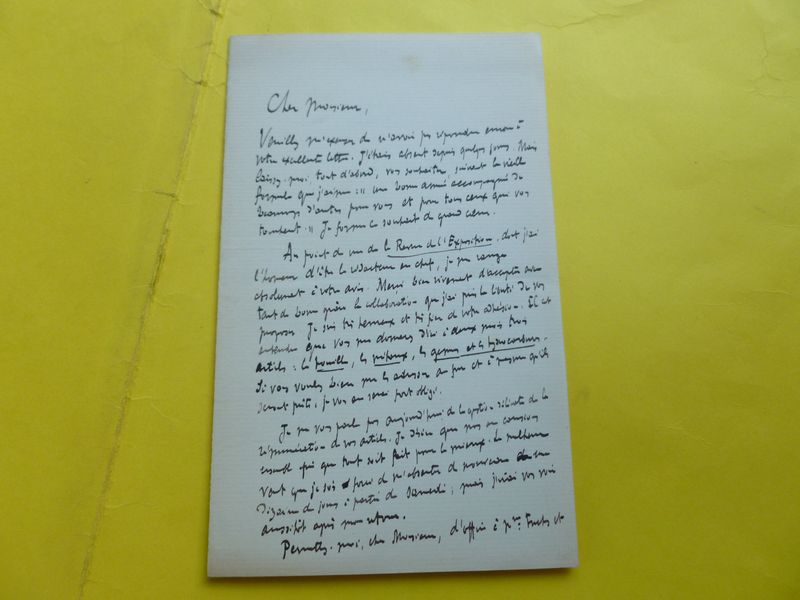 Cher Monsieur,
Veuillez m'excuser de n'avoir pas répondu encore à
votre excellente lettre. J'étais absent depuis quelques jours. Mais
laissez-moi, tout d'abord, vous souhaiter, suivant la vieille
formule que j'aime : "une bonne année accompagnée de
beaucoup d'autres pour vous et pour tous ceux qui vous
touchent." Je forme ce souhait de grand cœur.
Au point de vue de la Revue de l'Exposition, dont j'ai
l'honneur d'être le rédacteur en chef, je me range
absolument à votre avis. Merci bien vivement d'accepter avec
tant de bonne grâce la collaboration que j'ai pris la liberté de vous
proposer. Je suis très heureux et très fier de votre adhésion. Il est
entendu que vous me donnerez d'ici à deux mois trois
articles : la houille, les métaux, les gemmes et les hydrocarbures.
Si vous voulez bien me les adresser au fur et à mesure qu'ils
seront prêts, je vous en serai fort obligé.
Je ne vous parle pas aujourd'hui de la question délicate de la
rémunération de vos articles. Je désire que nous en causions
ensemble afin que tout soit fait pour le mieux. Le malheur
veut que je sois forcé de m'absenter de nouveau une
dizaine de jours à partir de Samedi ; mais j'irai vous voir
aussitôt après mon retour.
Permettez-moi, cher Monsieur, d'offrir à et